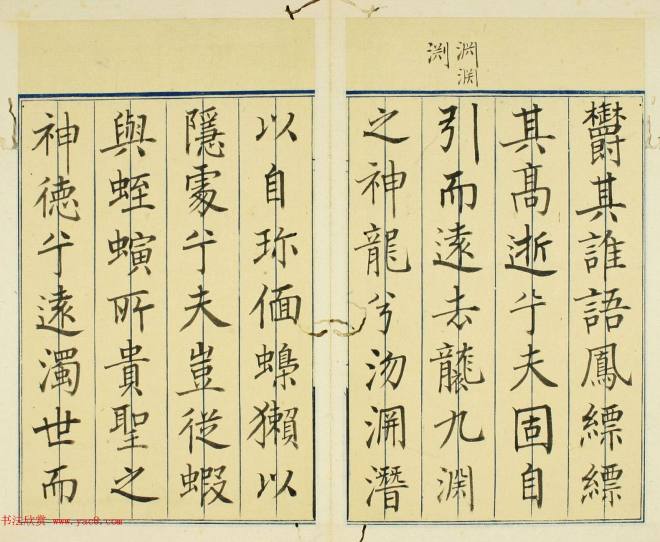 渕
欝其誰語鳳縹縹
其髙逝乎夫固自
引而遠去襲九渊
之神龍兮沕渊潛
以自珎偭蟂獺以
隱處乎夫豈從蝦
與蛭螾所貴聖之
神德乎遠濁世而
书法欣赏 www.yac8.com